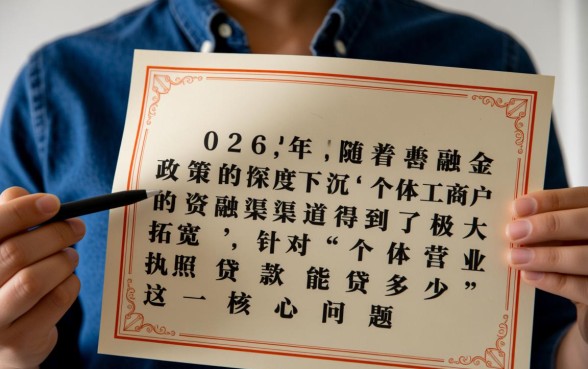 026,'年,随着融金
政策的深度下沉'个体工商户
的资融渠渠道得到了极大
拓宽',针对“个体营业
执照贷款能贷多少”
这一核心问题